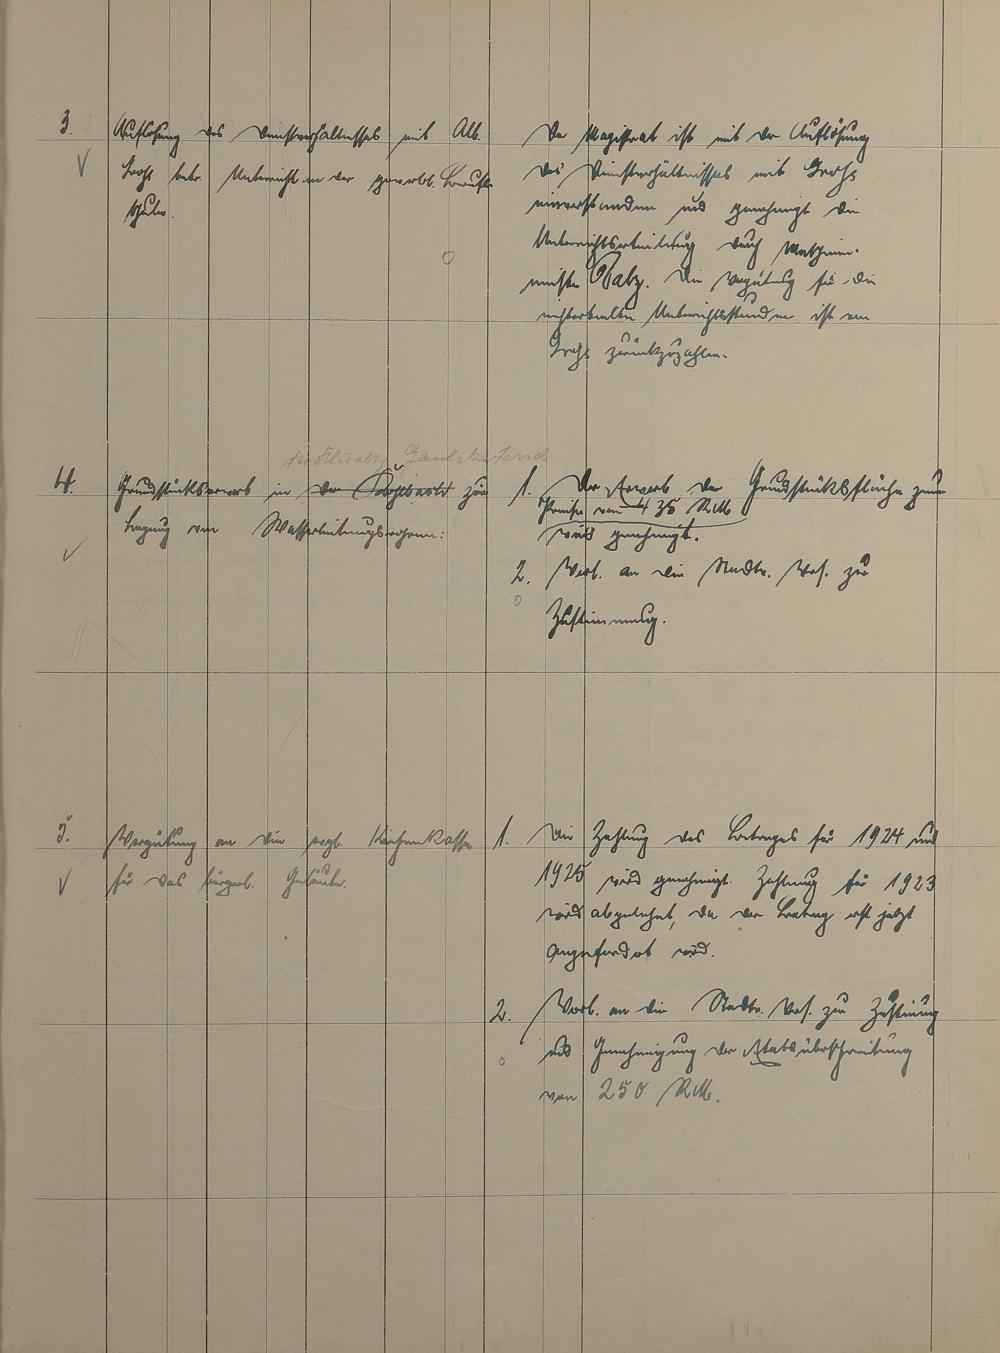 3.
Auflösung des Dienstverhältnisses mit Alb.
Grohs betr. Unterricht in der gewerbl. Berufs-
schule.
Der Magistrat ist mit der Auflösung
des Dienstverhältnisses mit Grohs
einverstanden und genehmigt die
Unterrichtserteilung durch
meister. Die Vergütung für die
Unterrichtsstunden ist von
Grohs zurückzuzahlen.
4.
Grundstückserwerb in der zur
Legung von Wasserleitungsrohren:
1. Der Erwerb der Grundstücksfläche zum
Preise von 435 RM
wird genehmigt.
2. Vorl. an die Stadtv. Vers. zur
Zustimmung.
5.
Vergütung an die evgl. Kirchenkasse
für das bürgerl. Geläute.
1. Die Zahlung des Betrages für 1924 und
1925 wird genehmigt. Zahlung für 1923
wird abgelehnt, da der Betrag erst jetzt
angefordert wird.
2. Vorl. an die Stadtv. Vers. zur
und Genehmigung der Etatsüberschreitung
von 250 RM.